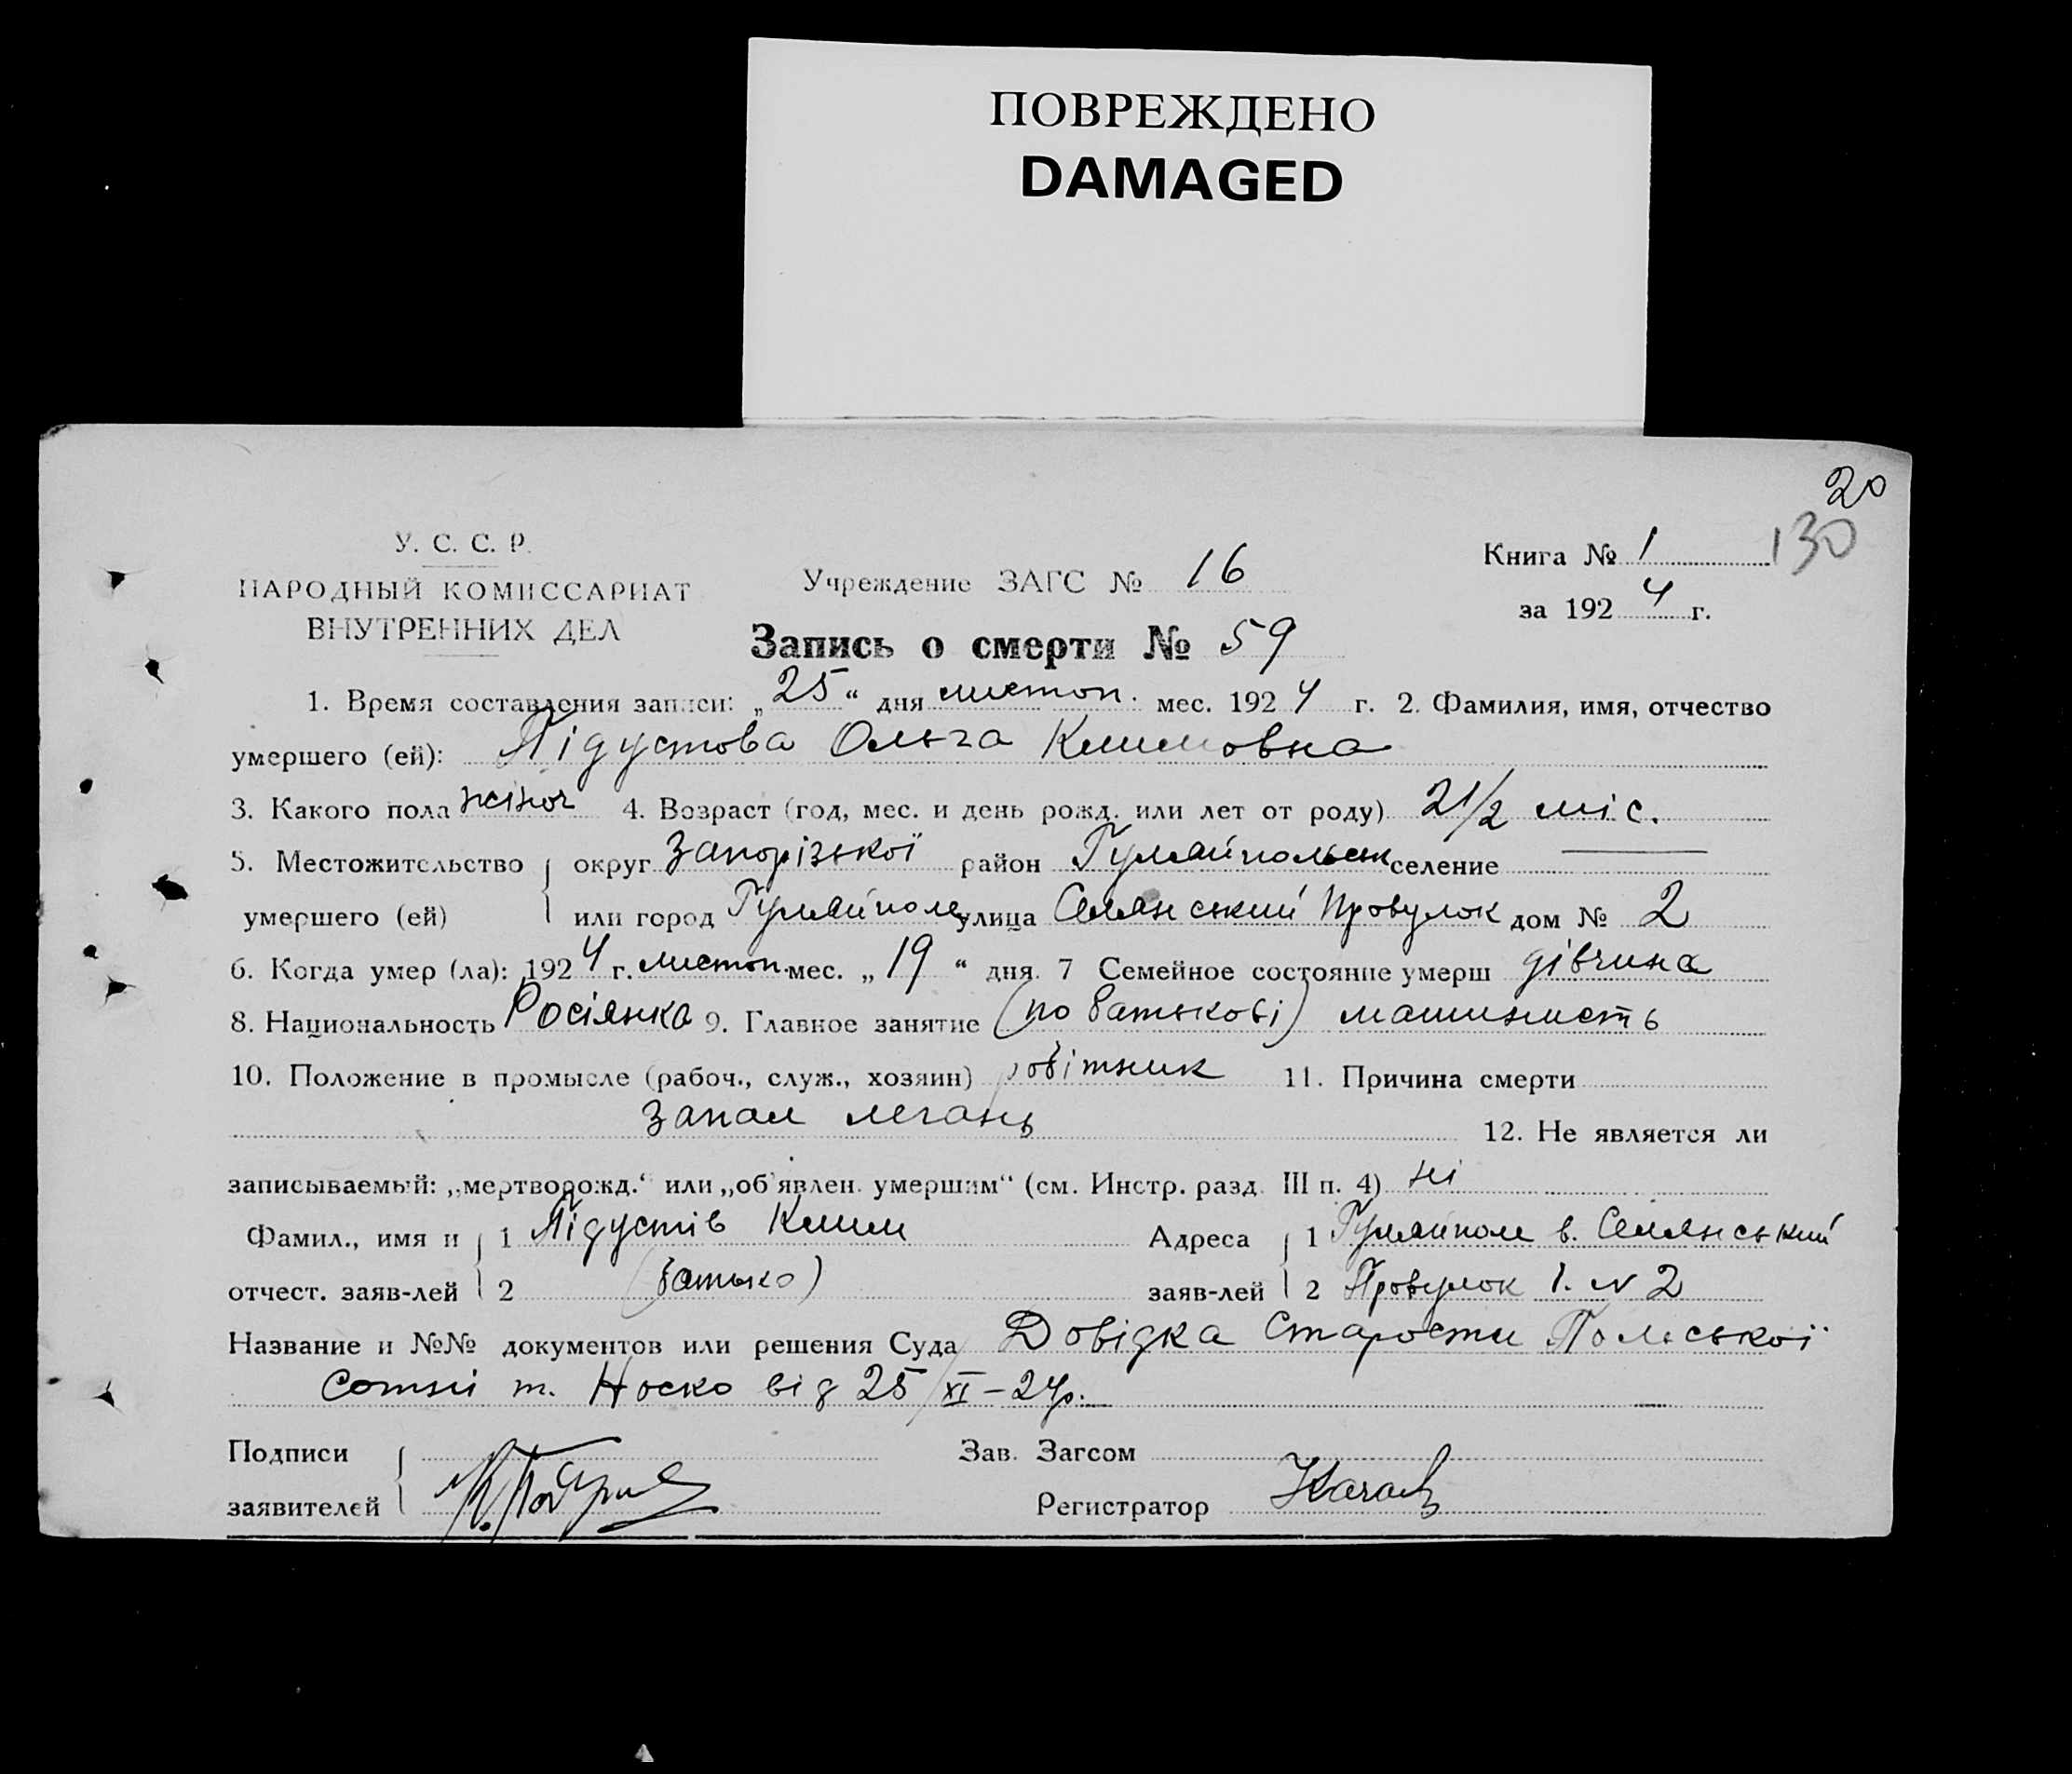 ПОВРЕЖДЕНО
DAMAGED
20
130
У. С. С. Р.
НАРОДНЫЙ КОМИССАРИАТ
ВНУТРЕННИХ ДЕЛ
Учреждение ЗАГС № 16
Книга № 1
за 1924 г.
Запись о смерти № 59
1. Время составления записи: „25“ дня листоп. мес. 1924 г. 2. Фамилия, имя, отчество
умершего (ей): Підустова Ольга Климовна
3. Какого пола жіноч 4. Возраст (год, мес. и день рожд. или лет от роду) 2 1/2 міс.
5. Местожительство округ Запорізької район Гуляйпольськ селение —
умершего (ей) или город Гуляйполе улица Селянський Провулок дом № 2
6. Когда умер (ла): 1924 г. листоп. мес. „19“ дня. 7 Семейное состояние умерш дівчина
8. Национальность Росіянка 9. Главное занятие (по батькові) машинисть
10. Положение в промысле (рабоч., служ., хозяин) робітник 11. Причина смерти
запал легань 12. Не является ли
записываемый: „мертворожд.“ или „об'явлен. умершим“ (см. Инстр. разд. III п. 4) ні
Фамил., имя и 1 Підустів Клим Адреса 1 Гуляйполе в. Селянський
отчест. заяв-лей 2 (батько) заяв-лей 2 Провулок № 2
Название и №№ документов или решения Суда Довідка Старости Польської
Сотні т. Носко від 25/XI–24р.
Подписи
Зав. Загсом
заявителей
Регистратор